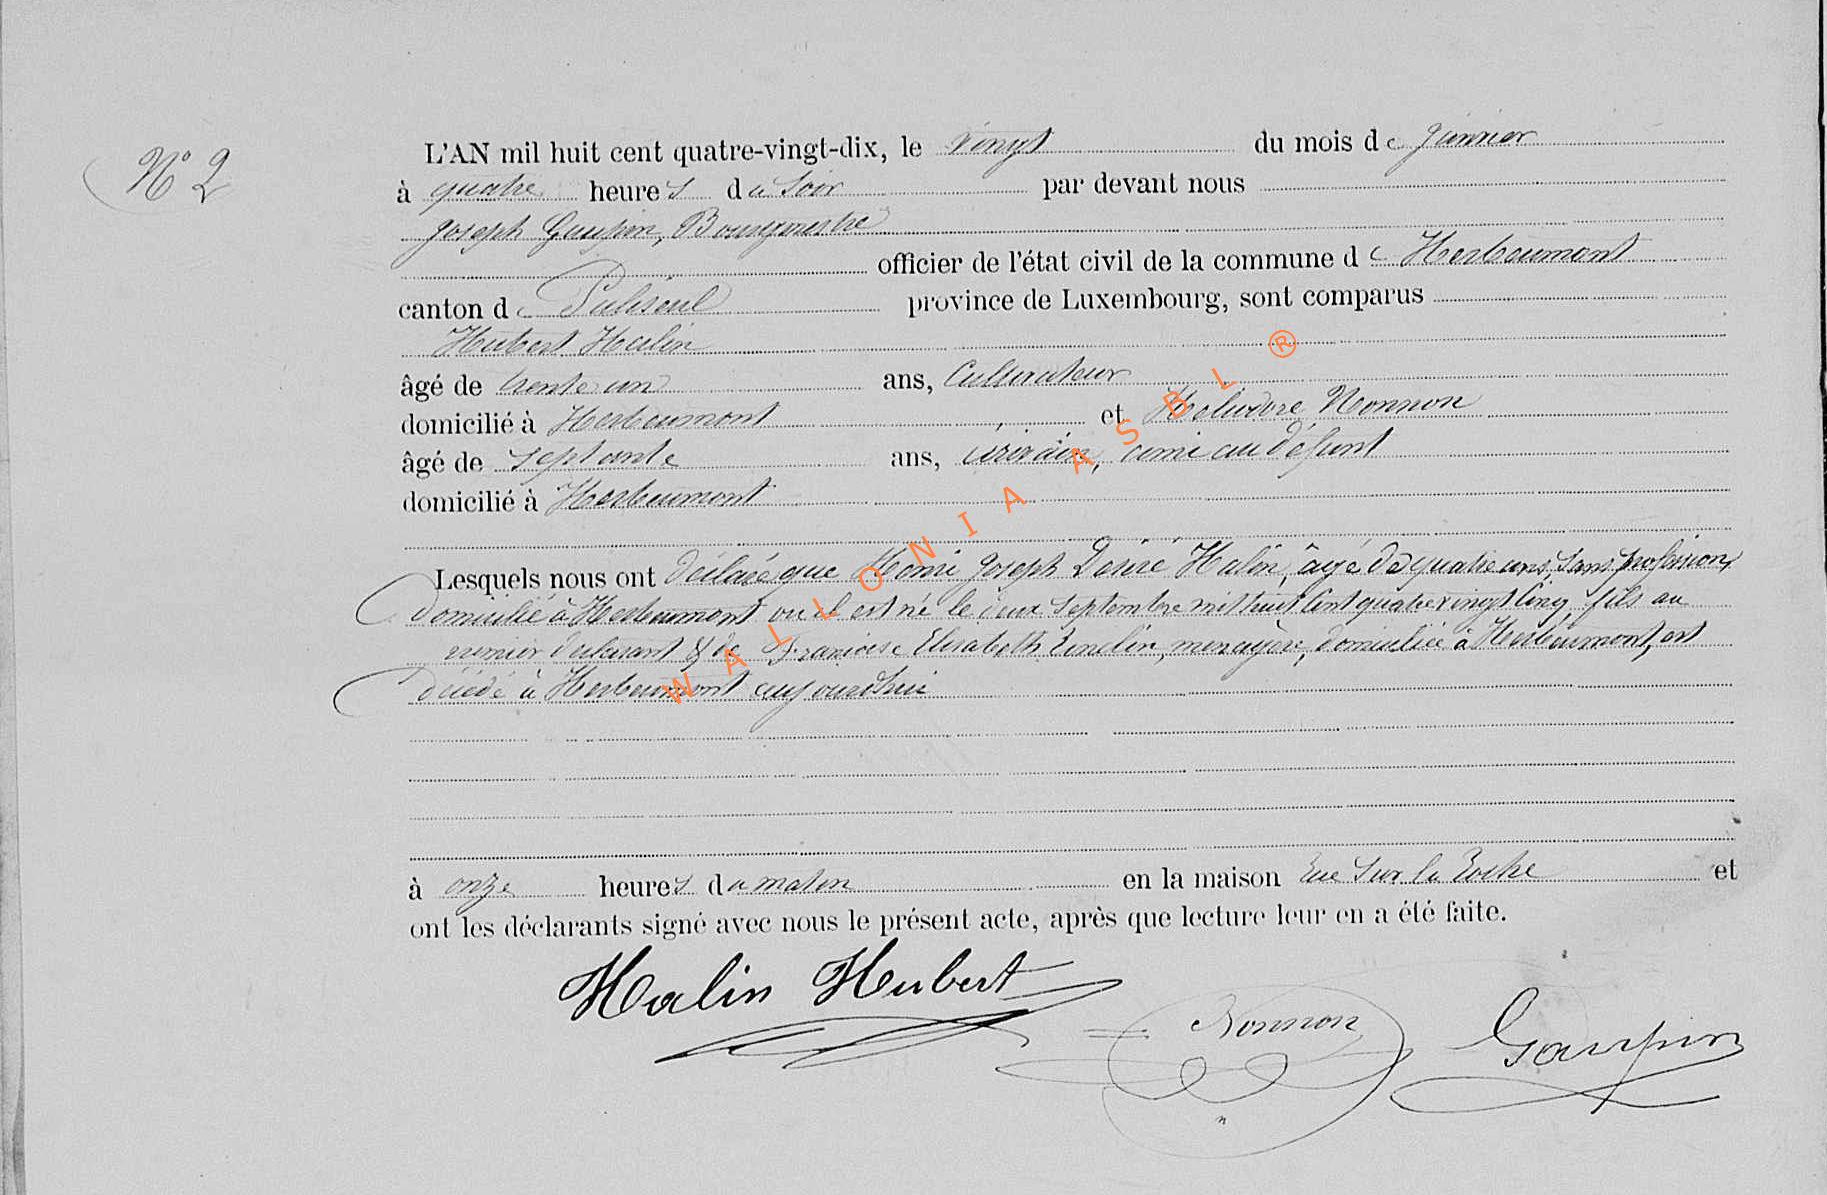 N° 2
L'AN mil huit cent quatre-vingt-dix, le vingt du mois de janvier
à quatre heures du soir par devant nous
Joseph Gaupin, Bourgmestre
officier de l'état civil de la commune de Herbeumont
canton de Paliseul province de Luxembourg, sont comparus
Hubert Halin
âgé de trente un ans, Cultivateur
domicilié à Herbeumont et Nonnon
âgé de septante ans, écrivain, ami au défunt
domicilié à Herbeumont
Lesquels nous ont déclaré que Joseph Désiré Halin, âgé de quatre ans, sans profession,
domicilié à Herbeumont où il est né le deux septembre mil huit cent quatre vingt cinq, fils au
premier déclarant & de Françoise Elisabeth, menagère, domiciliée à Herbeumont, est
décédé à Herbeumont aujourd'hui
à onze heures du matin en la maison rue sur la Roche et
ont les déclarants signé avec nous le présent acte, après que lecture leur en a été faite.
Halin Hubert
Nonnon
Gaupin
WALLONIA ASBL ®